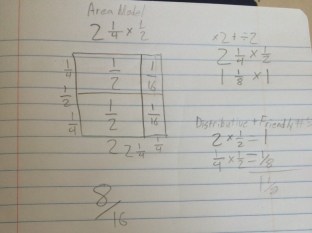 Area Model
2 1/4 × 1/2
1/4 1/2 1/16
1/2
1/4 1/2 1/16
2 2 1/4 1/4
8/16
×2 + ÷2
2 1/4 × 1/2
1 1/8 × 1
Distributive + Friendly
2 × 1/2 = 1
1/4 × 1/2 = 1/8